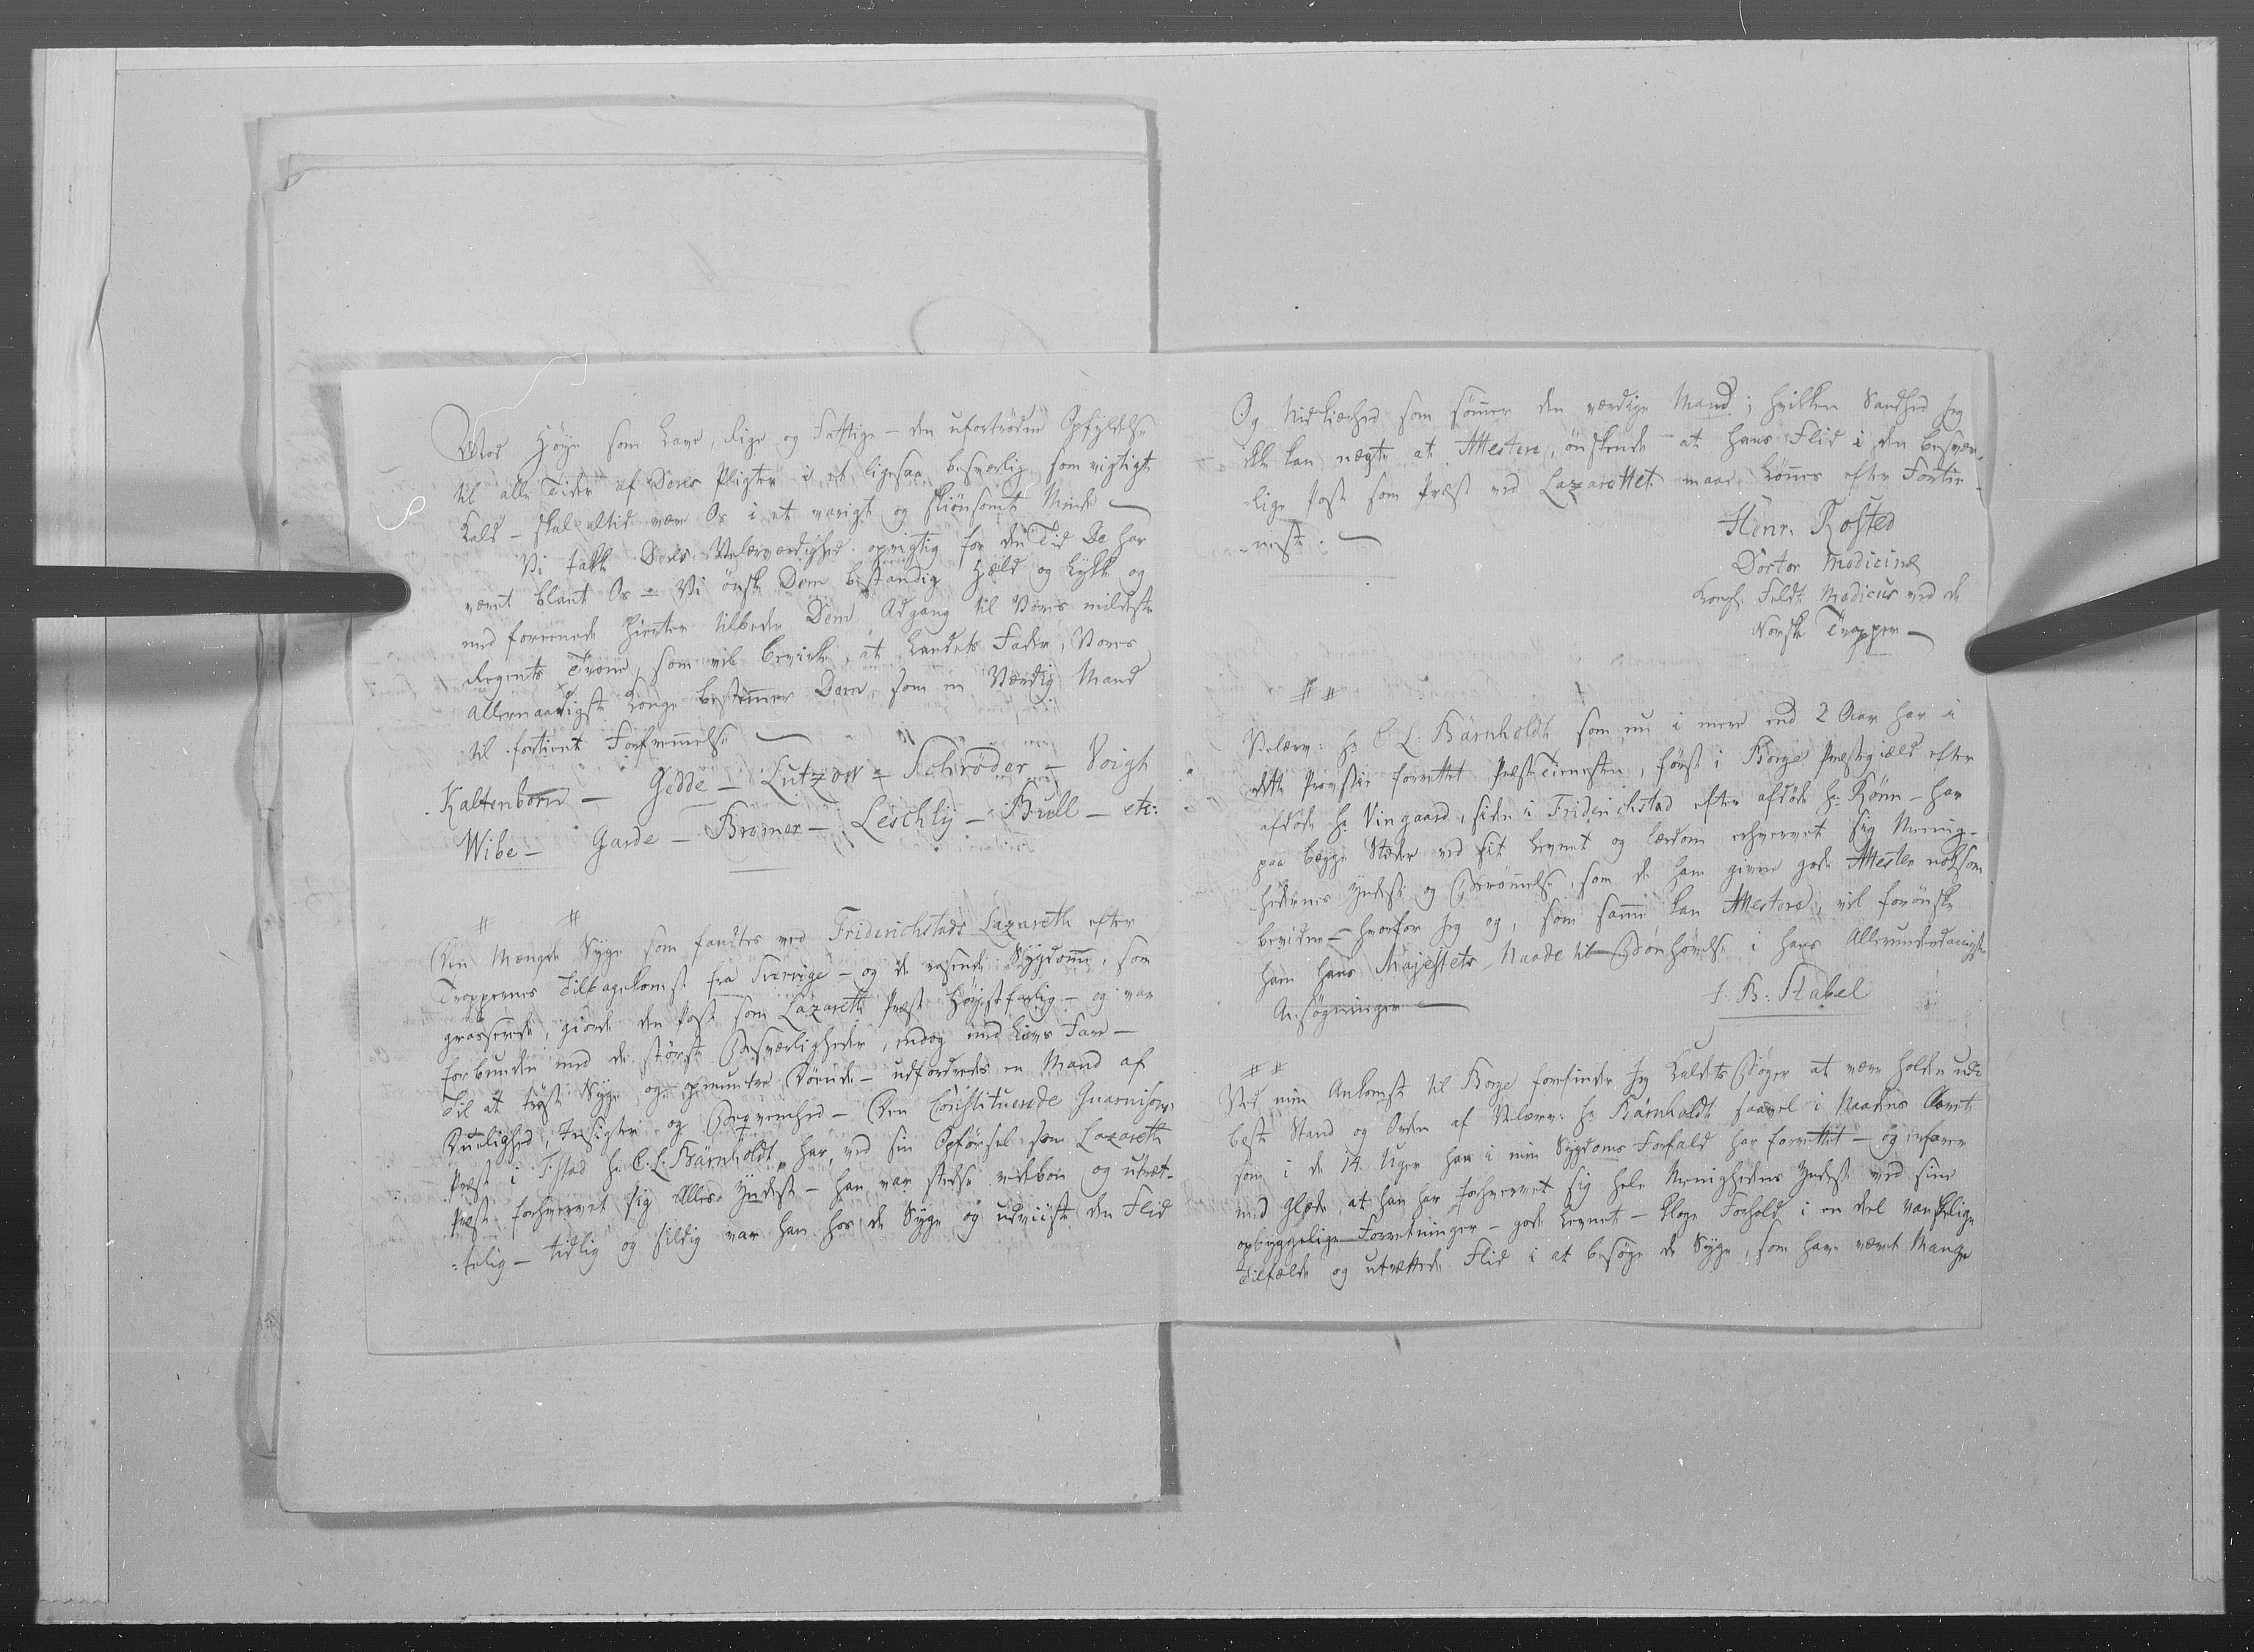 Mod Høye som Lave, Rige og Fattige – den ufortrødne Opfyldelse
til alle Tider af Deres Pligter i et ligesaa besværlig som vigtigt
Kald – skal altid være Os i et varigt og skiønsomt Minde –
Vi takke Deres Velærværdighed oprigtig for den Tid De har
været blant Os – Vi ønske Dem bestandig Held og Lykke og
med foreenede Hierter tilbede Dem Adgang til Vores mildeste
Regents Trone, som vil bevirke, at Landets Fader, Vores
allernaadigste Konge bestemmer Dem, som en Værdig Mand
til fortient Forfremmelse –
Kaltenborn – Gedde – Lutzow – Schrøder – Voigt
Wibe – Garde – Bremer – Leschly – Bull – etc:
# #
Den Mængde Syge som fandtes ved Friderichstads Lazareth efter
Troppernes Tilbagekomst fra Sverrige – og de rasende Sygdomme, som
grasserede, giorde den Post som Lazareth Præst Høyestfarlig – og var
forbunden med de største Besværligheder, endog med Livs Fare –
Til at trøste Syge og opmuntre Døende – udfordredes en Mand af
Duelighed, Indsigter og Beqvemhed – Den Constituerede Guarnisons
Præst i F:stad Hr. C. L. Bärnholdt, har, ved sin Opførsel som Lazareth
Præst forhvervet sig Alles Yndest – han var stedse redebon og utræt-
-telig – tidlig og sildig var han hos de Syge og udviiste den Flid
Og Nidkierhed som sømmer den værdige Mand; hvilken Sandhed Jeg
ikke kan nægte at Attestere, ønskende – at hans Flid i den besvær-
lige Post som Præst ved Lazarettet maae lønnes efter Fortie-
-neste. –
Henr. Rosted
Doctor Medicinæ
Kongl. Feldt Medicus ved de
Norske Tropper –
# #
Velærv: Hr. C L. Bärnholdt som nu i mere end 2 Aar har i
dette Provstie forrettet Præste Tienesten, først i Borge Præstegiæld efter
afdøde Hr. Vingaard, siden i Friderichstad efter afdøde Hr. Rönn – har
paa begge Stæder ved sit Levnet og Lærdom erhvervet sig Menig-
hedernes Yndest og Berømmelse, som de ham givne gode Attester noksom
beviidner – hvorfor Jeg og, som samme kan Attestere, vil forønske
ham Hans Majestets Naade til Bønhørelse i hans Allerunderdanigste
Ansøgninger –
J. B. Stabel
# #
Ved min Ankomst til Borge forefinder Jeg Kaldets Bøger at være holden udi
beste Stand og Orden af Velærv: Hr. Bärnholdt saavel i Naadens Aaret
som i de 14 Uger han i min Sygdoms Forfald har forrettet – og erfarer
med Glæde, at han har forhvervet sig heele Menighedens Yndest ved sine
opbyggelige Forretninger – gode Levnet – kloge Forhold i en deel vanskelige
Tilfælde og utrættede Flid i at besøge de Syge, som have været Mange